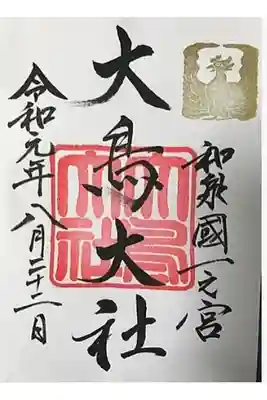 和泉國一之宮
大鳥大社
令和元年八月二十二日
大鳥大社